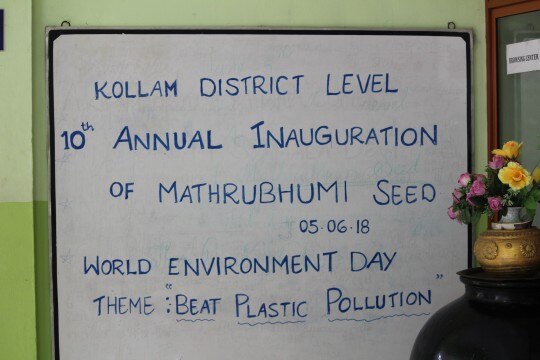 KOLLAM DISTRICT LEVEL
10th ANNUAL INAUGURATION
OF MATHRUBHUMI SEED
05-06-18
WORLD ENVIRONMENT DAY
THEME : "BEAT PLASTIC POLLUTION"
BROWSING CENTER